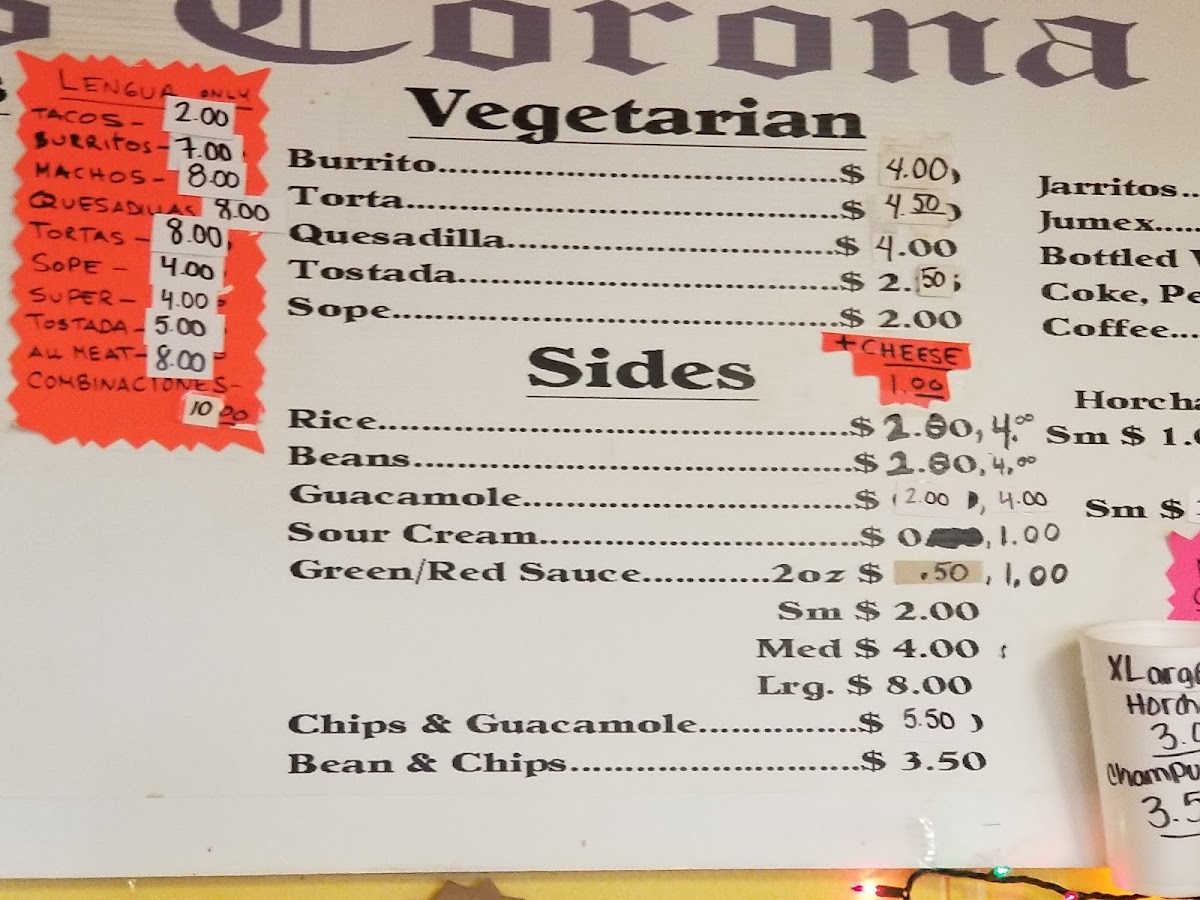 Corona
LENGUA ONLY
TACOS- 2.00
BURRITOS- 7.00
MACHOS- 8.00
QUESADILLAS 8.00
TORTAS- 8.00
SOPE- 4.00
SUPER- 4.00
TOSTADA- 5.00
ALL MEAT- 8.00
COMBINACIONES-
10.00
Vegetarian
Burrito........................................$ 4.00
Torta...........................................$ 4.50
Quesadilla.................................$ 4.00
Tostada.....................................$ 2.50
Sope............................................$ 2.00
+ CHEESE
1.00
Sides
Rice.............................................$ 2.00, 4.00
Beans..........................................$ 2.00, 4.00
Guacamole................................$ 2.00, 4.00
Sour Cream...............................$ 0, 1.00
Green/Red Sauce............2oz $ .50, 1.00
Sm $ 2.00
Med $ 4.00
Lrg. $ 8.00
Chips & Guacamole...............$ 5.50
Bean & Chips...........................$ 3.50
Jarritos..
Jumex.....
Bottled
Coke, Pe
Coffee...
Horcha
Sm $ 1.
Sm $
XLarge
Horch
3.0
Champu
3.5